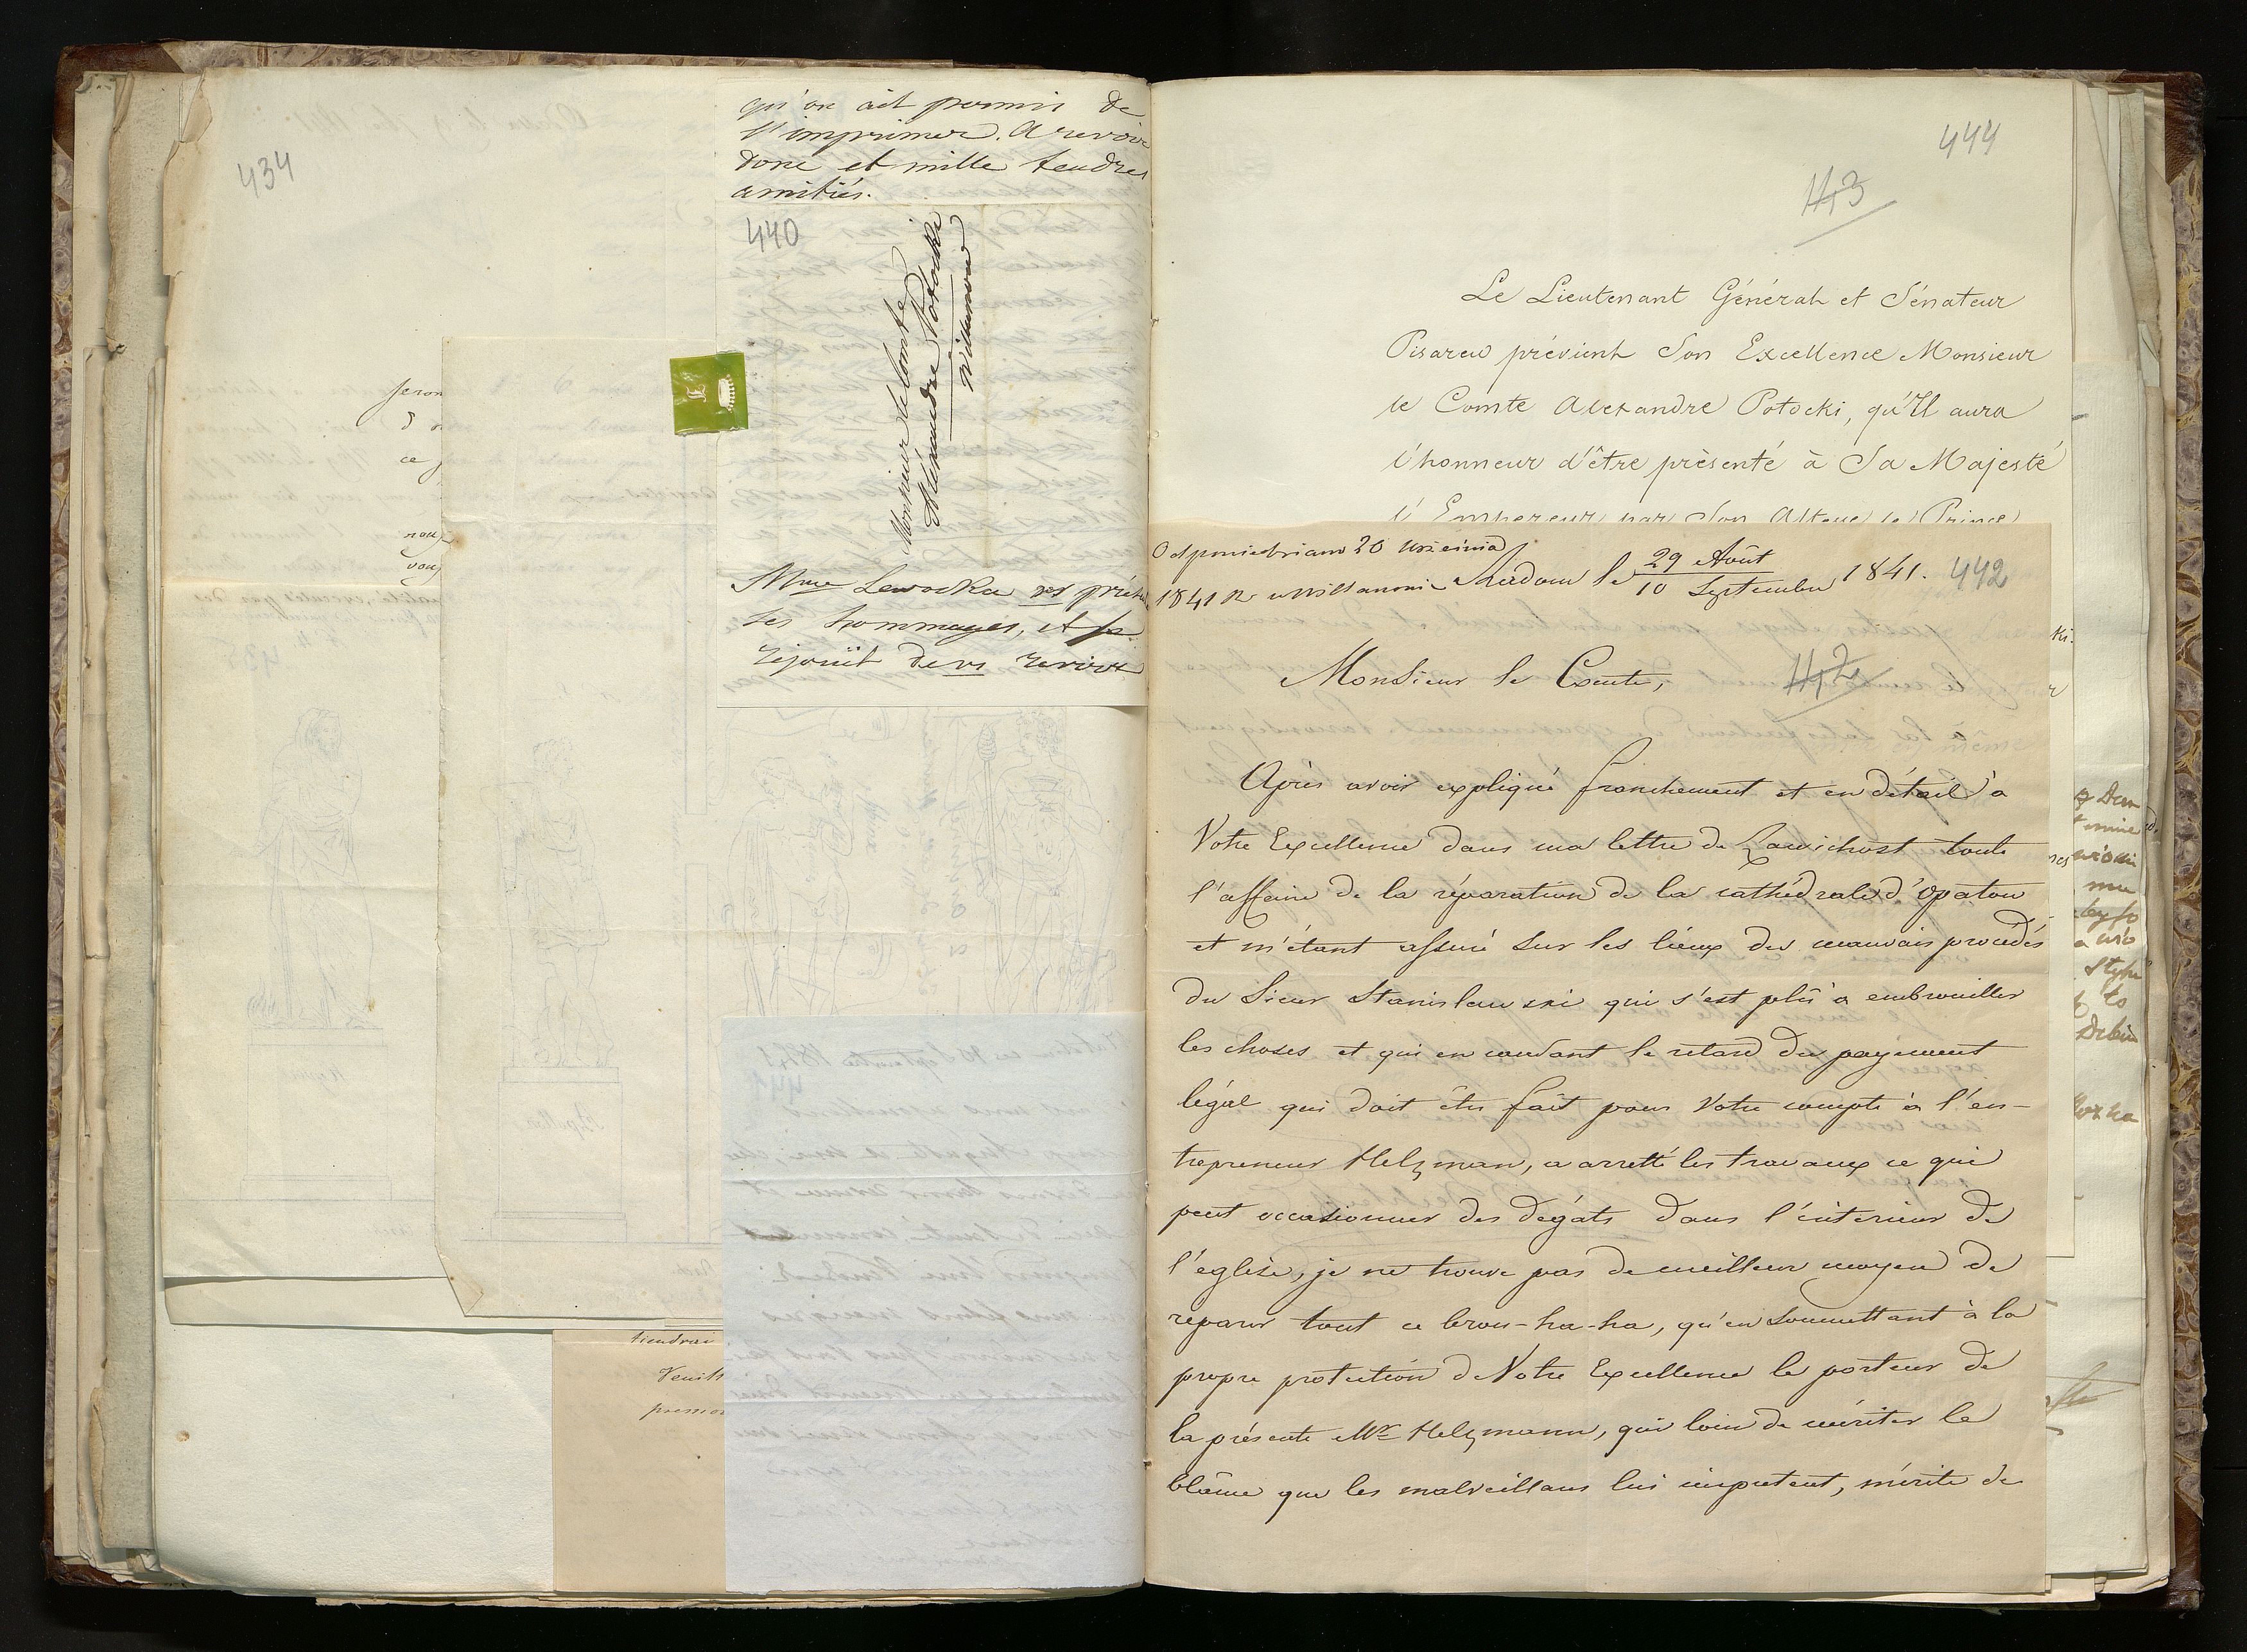 434
qu'on ait permis de
l'imprimer. A revoir
donc et mille tendres
amitiés.
440
Monsieur le Comte
Alexandre Potocki
Willanow
Mme Lewocka vs présente
ses hommages, et se
rejouït de vs revoir
ce
vous
tiendrai
444
443
Le Lieutenant Général et Sénateur
Pisarew prévient Son Excellence Monsieur
le Comte Alexandre Potocki, qu'Il aura
l'honneur d'être présenté à Sa Majesté
l'Empereur par Son Altesse le Prince
Odpowiedziano 20 Września
1841 R. w Willanowie
Radom le 29 Août
10 Septembre 1841.
442
Monsieur le Comte,
442
Après avoir expliqué franchement et en détail à
Votre Excellence dans ma lettre de Zawichost toute
l'affaire de la réparation de la cathédrale d'Opatow
et m'étant assuré sur les lieux des mauvais procédés
du Sieur Stanislawski qui s'est plû à embrouiller
les choses et qui en causant le retard du payement
légal qui doit être fait pour Votre compte à l'en-
trepreneur Helzman, a arretté les travaux ce qui
peut occasionner des degâts dans l'interieur de
l'eglise, je ne trouve pas de meilleur moyen de
reparer tout ce brou-ha-ha, qu'en soumettant à la
propre protection de Votre Excellence le porteur de
la présente Mr Helzmann, qui loin de mériter le
blâme que les malveillans lui imputent, mérite de